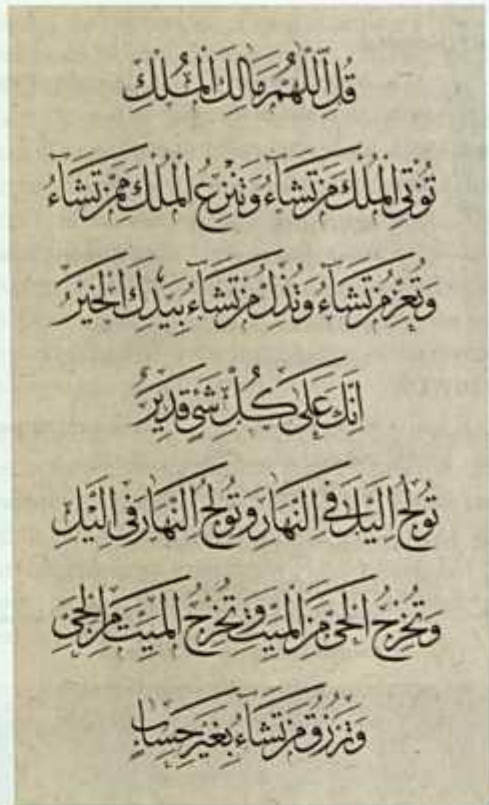 قُلِ اللَّهُمَّ مَالِكَ الْمُلْكِ
تُؤْتِي الْمُلْكَ مَنْ تَشَاءُ وَتَنْزِعُ الْمُلْكَ مِمَّنْ تَشَاءُ
وَتُعِزُّ مَنْ تَشَاءُ وَتُذِلُّ مَنْ تَشَاءُ بِيَدِكَ الْخَيْرُ
إِنَّكَ عَلَى كُلِّ شَيْءٍ قَدِيرٌ
تُولِجُ الَّيْلَ فِي النَّهَارِ وَتُولِجُ النَّهَارَ فِي الَّيْلِ
وَتُخْرِجُ الْحَيَّ مِنَ الْمَيِّتِ وَتُخْرِجُ الْمَيِّتَ مِنَ الْحَيِّ
وَتَرْزُقُ مَنْ تَشَاءُ بِغَيْرِ حِسَابٍ